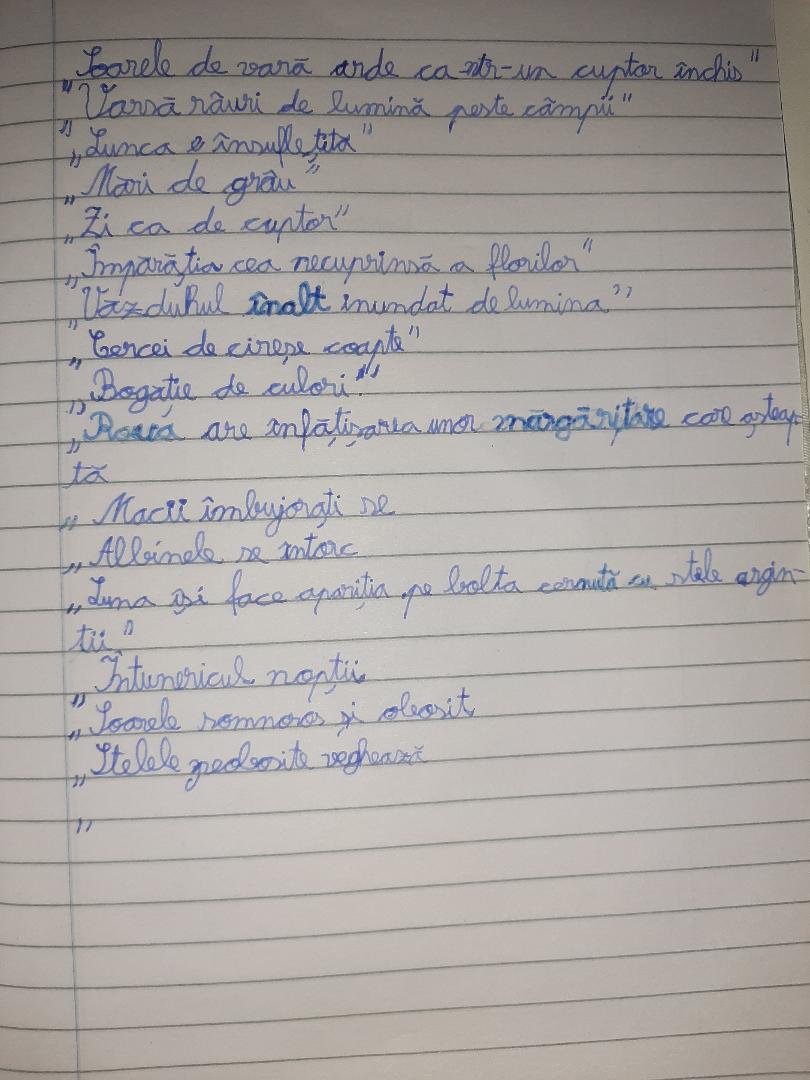 Soarele de vară arde ca ntr-un cuptor închis"
"Varsă râuri de lumină peste câmpii"
"„Lunca e însuflețita"
„Mări de grâu"
„Zi ca de cuptor"
„Împărăția cea necuprinsă a florilor"
„Văzduhul înalt inundat de lumina"
„Cercei de cireșe coapte"
„Bogație de culori!"
„Roua are înfățișarea unor mărgăritare care așteap-
tă
„Macii îmbujorați se
„Albinele se întorc
„Luna își face apariția pe bolta cernută cu stele argin-
tii"
„Întunericul nopții
„Soarele somnoros și obosit
„Stelele veghează
„